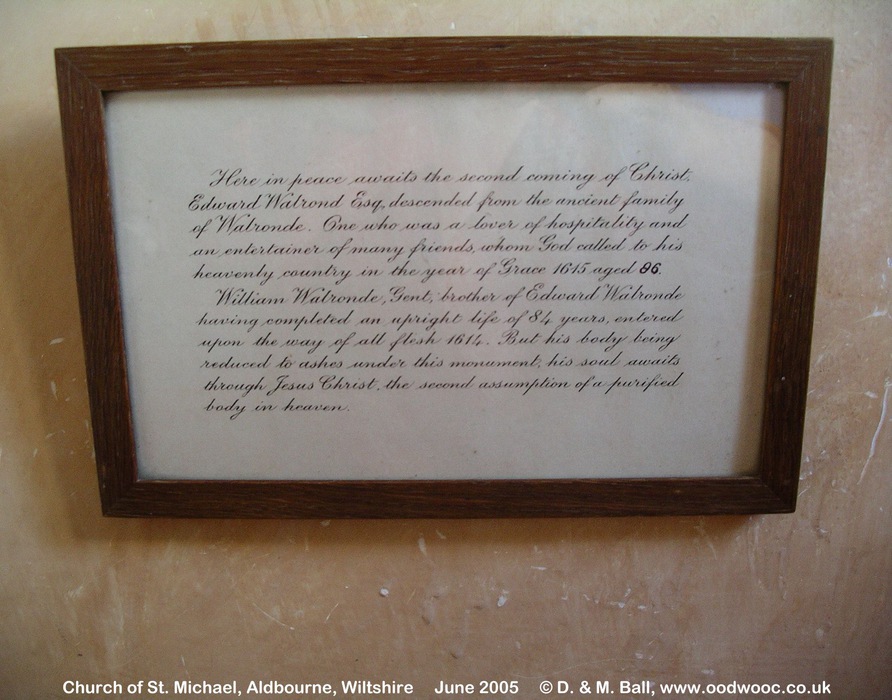 Here in peace awaits the second coming of Christ,
Edward Walrond Esq, descended from the ancient family
of Walronde. One who was a lover of hospitality and
an entertainer of many friends, whom God called to his
heavenly country in the year of Grace 1615 aged 96.
William Walronde, Gent, brother of Edward Walronde
having completed an upright life of 84 years, entered
upon the way of all flesh 1614. But his body being
reduced to ashes under this monument, his soul awaits
through Jesus Christ, the second assumption of a purified
body in heaven.
Church of St. Michael, Aldbourne, Wiltshire June 2005 © D. & M. Ball, www.oodwooc.co.uk